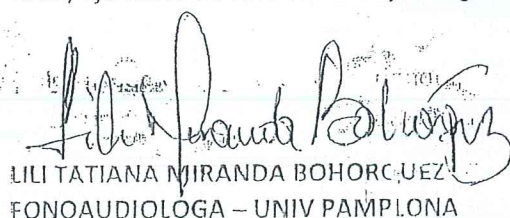 Lili Miranda Bohorquez
LILI TATIANA MIRANDA BOHORQUEZ
FONOAUDIOLOGA – UNIV PAMPLONA